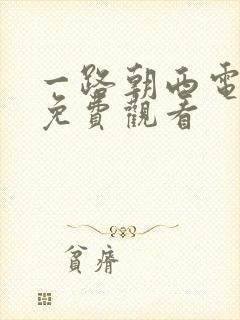 一路朝西電
免費觀看
貧瘠